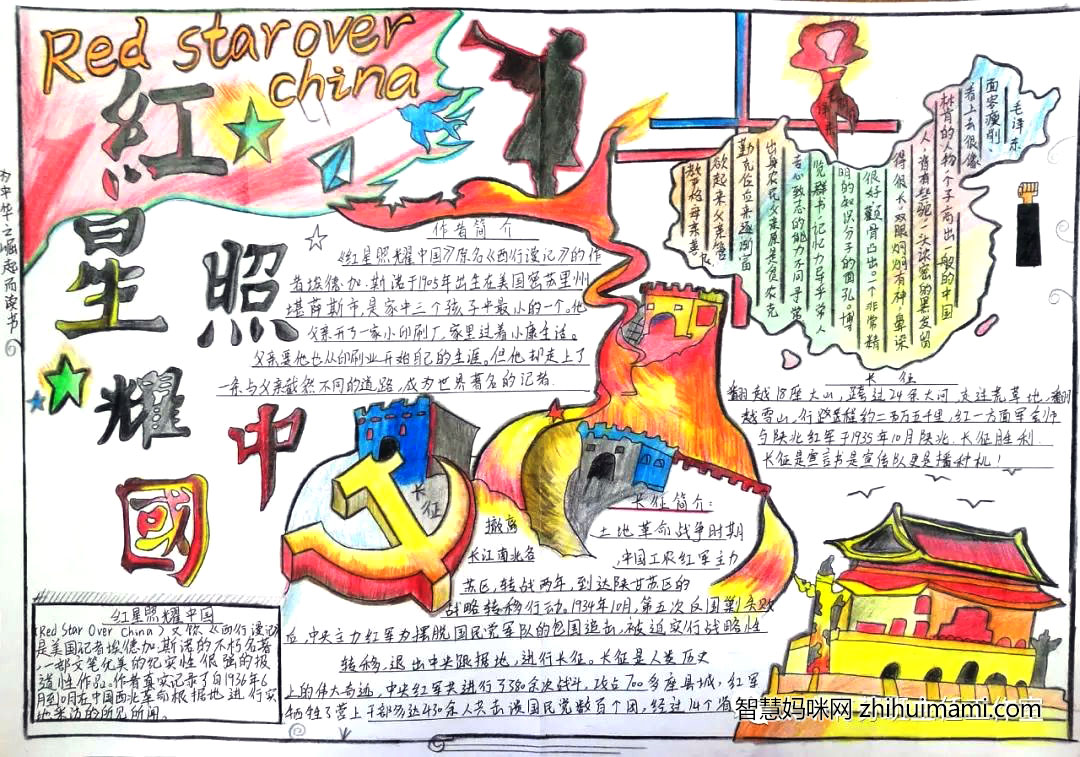 Red star over
china
红
星
照
耀
中
國
为中华之崛起而读书
作者简介
《红星照耀中国》原名《西行漫记》的作
者埃德加·斯诺于1905年出生在美国密苏里州
堪萨斯市,是家中三个孩子中最小的一个。他
父亲开了一家小印刷厂,家里过着小康生活。
父亲要他也从印刷业开始自己的生涯。但他却走上了
一条与父亲截然不同的道路,成为世界著名的记者.
毛泽东
面容瘦削
看上去很像
林肯的人物,个子高出一般的中国
人,背有些驼,一头浓密的黑发留
得很长,双眼炯炯有神,鼻梁
很好,颧骨凸出。一个非常精
明的知识分子的面孔。博
览群书,记忆力异乎常人
专心致志的能力不同寻常
出身农民父亲原是贫农
长征
翻越18座大山,跨过24条大河,走过荒草地,翻
越雪山,行程约二万五千里,红一方面军会师
与陕北红军于1935年10月陕北.长征胜利.
长征是宣言书是宣传队更是播种机!
长
征
长征简介:
土地革命战争时期
,中国工农红军主力
撤离
长江南北各
苏区,转战两年,到达陕甘苏区的
战略转移行动。1934年10月,第五次反围剿失败
后,中央主力红军为摆脱国民党军队的包围追击,被迫实行战略性
转移,退出中央根据地,进行长征。长征是人类历史
上的伟大奇迹,中央红军共进行了380余次战斗,攻占700多座县城,红军
牺牲了营上干部多达430余人,共击溃国民党数百个团,经过14个省
红星照耀中国
(Red Star Over China)又称《西行漫记》
是美国记者埃德加.斯诺的不朽名著
,一部文笔优美的纪实性很强的报
道性作品。作者真实记录了自1936年6
月至10月在中国西北革命根据地进行实
地采访的所见所闻。
智慧妈咪网 zhihuimami.com